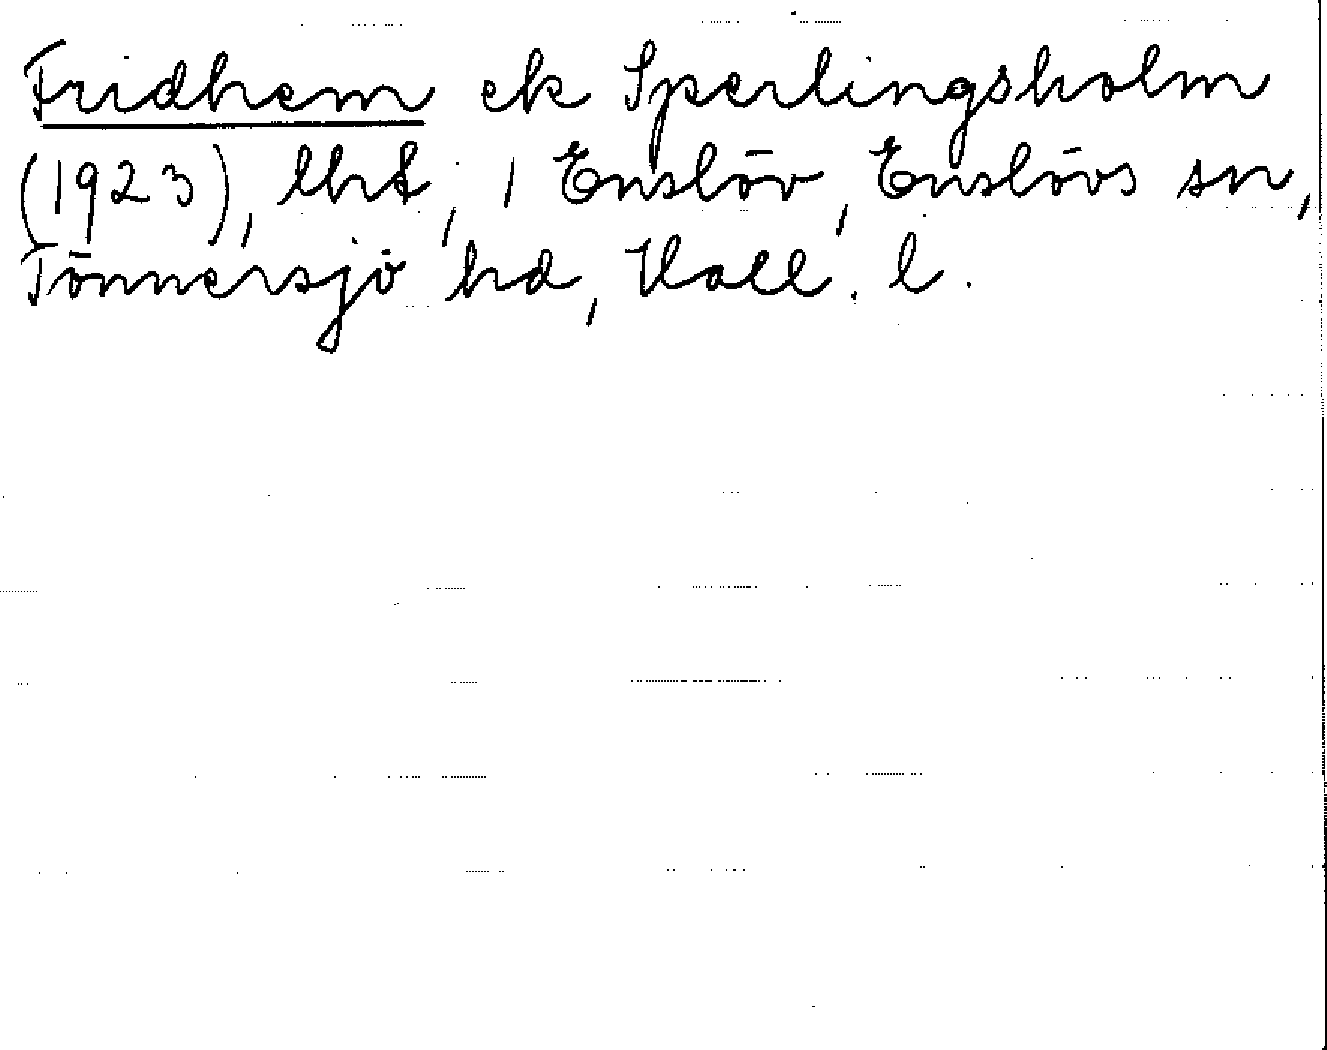 Fridhem ek Sperlingsholm
(1923), lht, 1 Enslöv, Enslövs sn,
Tönnersjö hd, Hall. l.